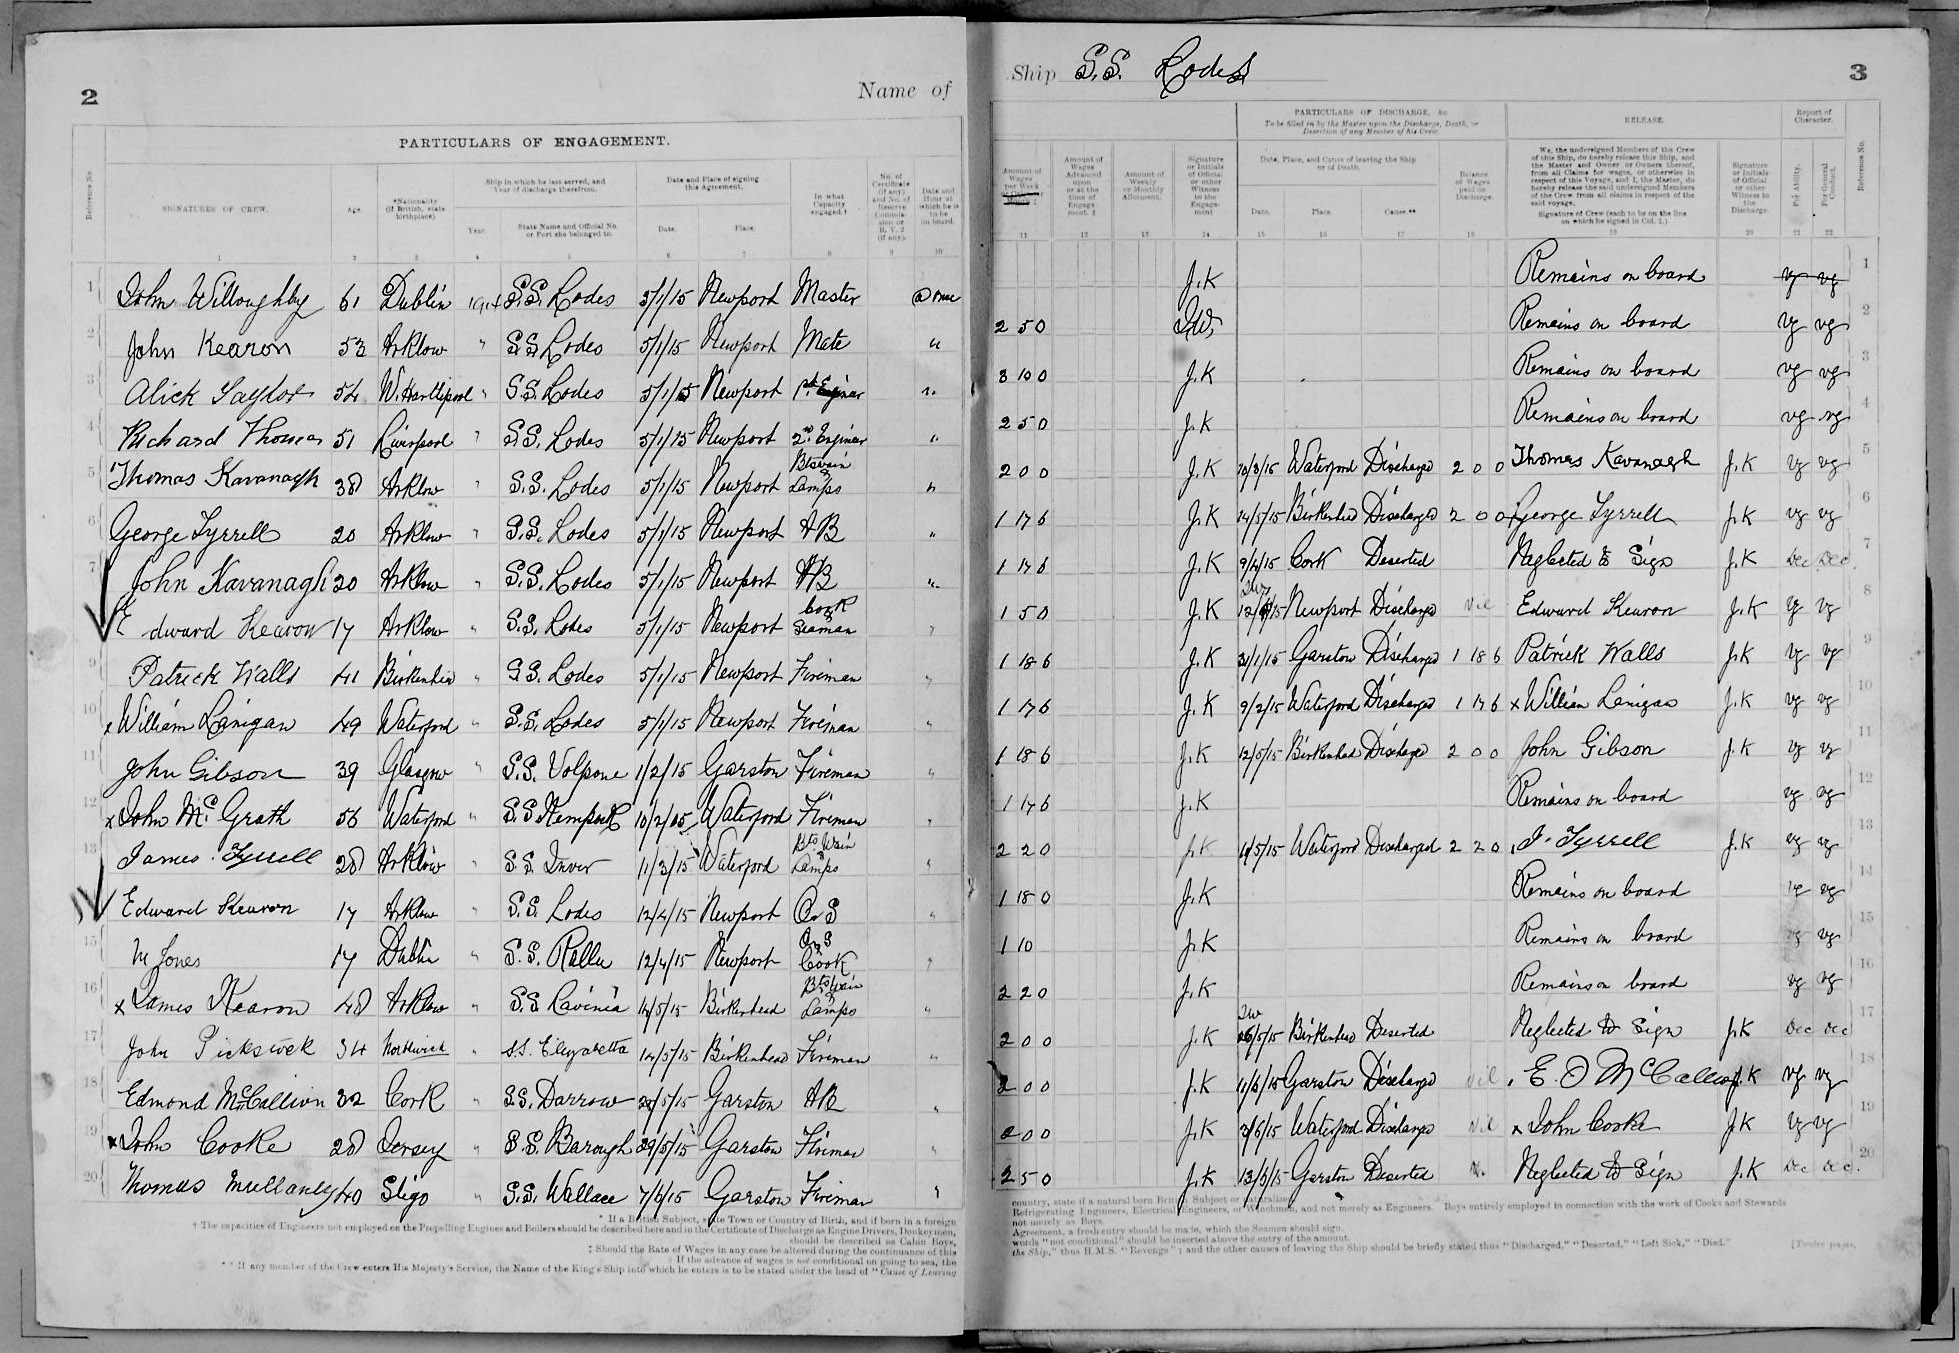 2
Name of
PARTICULARS OF ENGAGEMENT.
Reference No.
SIGNATURES OF CREW.
Age.
*Nationality (if British, state birthplace).
Ship in which he last served, and Year of discharge therefrom.
Year.
State Name and Official No. or Port she belonged to.
Date and Place of signing this Agreement.
Date.
Place.
In what Capacity engaged.†
No. of Certificate (if any) and No. of Reserve Commission or R.V.2 (if any).
Date and Hour at which he is to be on board.
1 2 3 4 5 6 7 8 9 10
1 John Willoughby 61 Dublin 1914 S.S. Lodes 5/1/15 Newport Master @ once
2 John Kearon 53 Arklow " S.S. Lodes 5/1/15 Newport Mate "
3 Alick Taylor 54 W. Hartlepool " S.S. Lodes 5/1/15 Newport 1st Enginer "
4 Richard Thomas 51 Liverpool " S.S. Lodes 5/1/15 Newport 2nd Engineer "
5 Thomas Kavanagh 38 Arklow " S.S. Lodes 5/1/15 Newport Btswain & Lamps "
6 George Tyrrell 20 Arklow " S.S. Lodes 5/1/15 Newport AB "
7 John Kavanagh 20 Arklow " S.S. Lodes 5/1/15 Newport AB "
8 Edward Kearon 17 Arklow " S.S. Lodes 5/1/15 Newport Cook & Seaman "
9 Patrick Walls 41 Birkenhead " S.S. Lodes 5/1/15 Newport Fireman "
10 x William Lenigan 49 Waterford " S.S. Lodes 5/1/15 Newport Fireman "
11 John Gibson 39 Glasgow " S.S. Volpone 1/2/15 Garston Fireman "
12 x John Mc Grath 56 Waterford " S.S. 10/2/15 Waterford Fireman "
13 James Tyrrell 28 Arklow " S.S. Inver 11/3/15 Waterford Bts Wain & Lamps "
14 Edward Kearon 17 Arklow " S.S. Lodes 12/4/15 Newport O.S "
15 M Jones 17 Dublin " S.S. 12/4/15 Newport O.S & Cook "
16 x James Kearon 48 Arklow " S.S. Ravinia 14/5/15 Birkenhead Bts Wain & Lamps "
17 John Pickswick 34 Northwich " S.S. Elizabetta 14/5/15 Birkenhead Fireman "
18 Edmond McCallion 32 Cork " S.S. Darrow /5/15 Garston AB "
19 x John Cooke 28 Jersey " S.S. Barough 29/5/15 Garston Fireman "
20 Thomas Mullaney 40 Sligo " S.S. Wallace 7/6/15 Garston Fireman "
* If a British Subject, state Town or Country of Birth, and if born in a foreign
† The capacities of Engineers not employed on the Propelling Engines and Boilers should be described here and in the Certificate of Discharge as Engine Drivers, Donkeymen,
should be described as Cabin Boys,
‡ Should the Rate of Wages in any case be altered during the continuance of this
§ If the advance of wages is not conditional on going to sea, the
** If any member of the Crew enters His Majesty's Service, the Name of the King's Ship into which he enters is to be stated under the head of "Cause of Leaving
Ship S.S. Lodes
3
Amount of Wages per Week
Amount of Wages Advanced upon or at the time of Engagement.
Amount of Weekly or Monthly Allotment.
Signature or Initials of Official or other Witness to the Engagement
PARTICULARS OF DISCHARGE, &c.
To be filled in by the Master upon the Discharge, Death, or Desertion of any Member of his Crew.
Date, Place, and Cause of leaving the Ship or of Death.
Date.
Place.
Cause.**
Balance of Wages paid on Discharge.
RELEASE.
We, the undersigned Members of the Crew of this Ship, do hereby release this Ship, and the Master and Owner or Owners thereof, from all Claims for wages, or otherwise in respect of this Voyage, and I, the Master, do hereby release the said undersigned Members of the Crew from all claims in respect of the said voyage.
Signature of Crew (each to be on the line on which he signed in Col. 1.)
Signature or Initials of Official or other Witness to the Discharge.
Report of Character.
For Ability.
For General Conduct.
Reference No.
11 12 13 14 15 16 17 18 19 20 21 22
J.K Remains on board vg vg 1
2 5 0 J.W. Remains on board vg vg 2
3 10 0 J.K Remains on board vg vg 3
2 5 0 J.K Remains on board vg vg 4
2 0 0 J.K 10/3/15 Waterford Discharged 2 0 0 Thomas Kavanagh J.K vg vg 5
1 17 6 J.K 14/5/15 Birkenhead Discharged 2 0 0 George Tyrrell J.K vg vg 6
1 17 6 J.K 9/4/15 Cork Deserted Neglected to Sign J.K Dec Dec 7
1 5 0 J.K 12/4/15 Newport Discharge Nil Edward Kearon J.K vg vg 8
1 18 6 J.K 31/1/15 Garston Discharged 1 18 6 Patrick Walls J.K vg vg 9
1 17 6 J.K 9/2/15 Waterford Discharged 1 17 6 x William Lenigan J.K vg vg 10
1 18 6 J.K 12/5/15 Birkenhead Discharged 2 0 0 John Gibson J.K vg vg 11
1 17 6 J.K Remains on board vg vg 12
2 2 0 J.K /5/15 Waterford Discharged 2 2 0 J. Tyrrell J.K vg vg 13
1 18 0 J.K Remains on board vg vg 14
1 10 J.K Remains on board vg vg 15
2 2 0 J.K Remains on board vg vg 16
2 0 0 J.K JW 26/5/15 Birkenhead Deserted Neglected to Sign J.K Dec Dec 17
2 0 0 J.K 11/6/15 Garston Discharge Nil E. O McCallion J.K vg vg 18
2 0 0 J.K 3/6/15 Waterford Discharge Nil x John Cooke J.K vg vg 19
2 5 0 J.K 13/6/15 Garston Deserted Neglected to Sign J.K Dec Dec. 20
country, state if a natural born British Subject or naturalized.
Refrigerating Engineers, Electrical Engineers, or Winchmen, and not merely as Engineers. Boys entirely employed in connection with the work of Cooks and Stewards
not merely as Boys.
Agreement, a fresh entry should be made, which the Seamen should sign.
words "not conditional" should be inserted above the entry of the amount.
the Ship," thus H.M.S. "Revenge"; and the other causes of leaving the Ship should be briefly stated thus "Discharged," "Deserted," "Left Sick," "Died."
[Twelve pages.